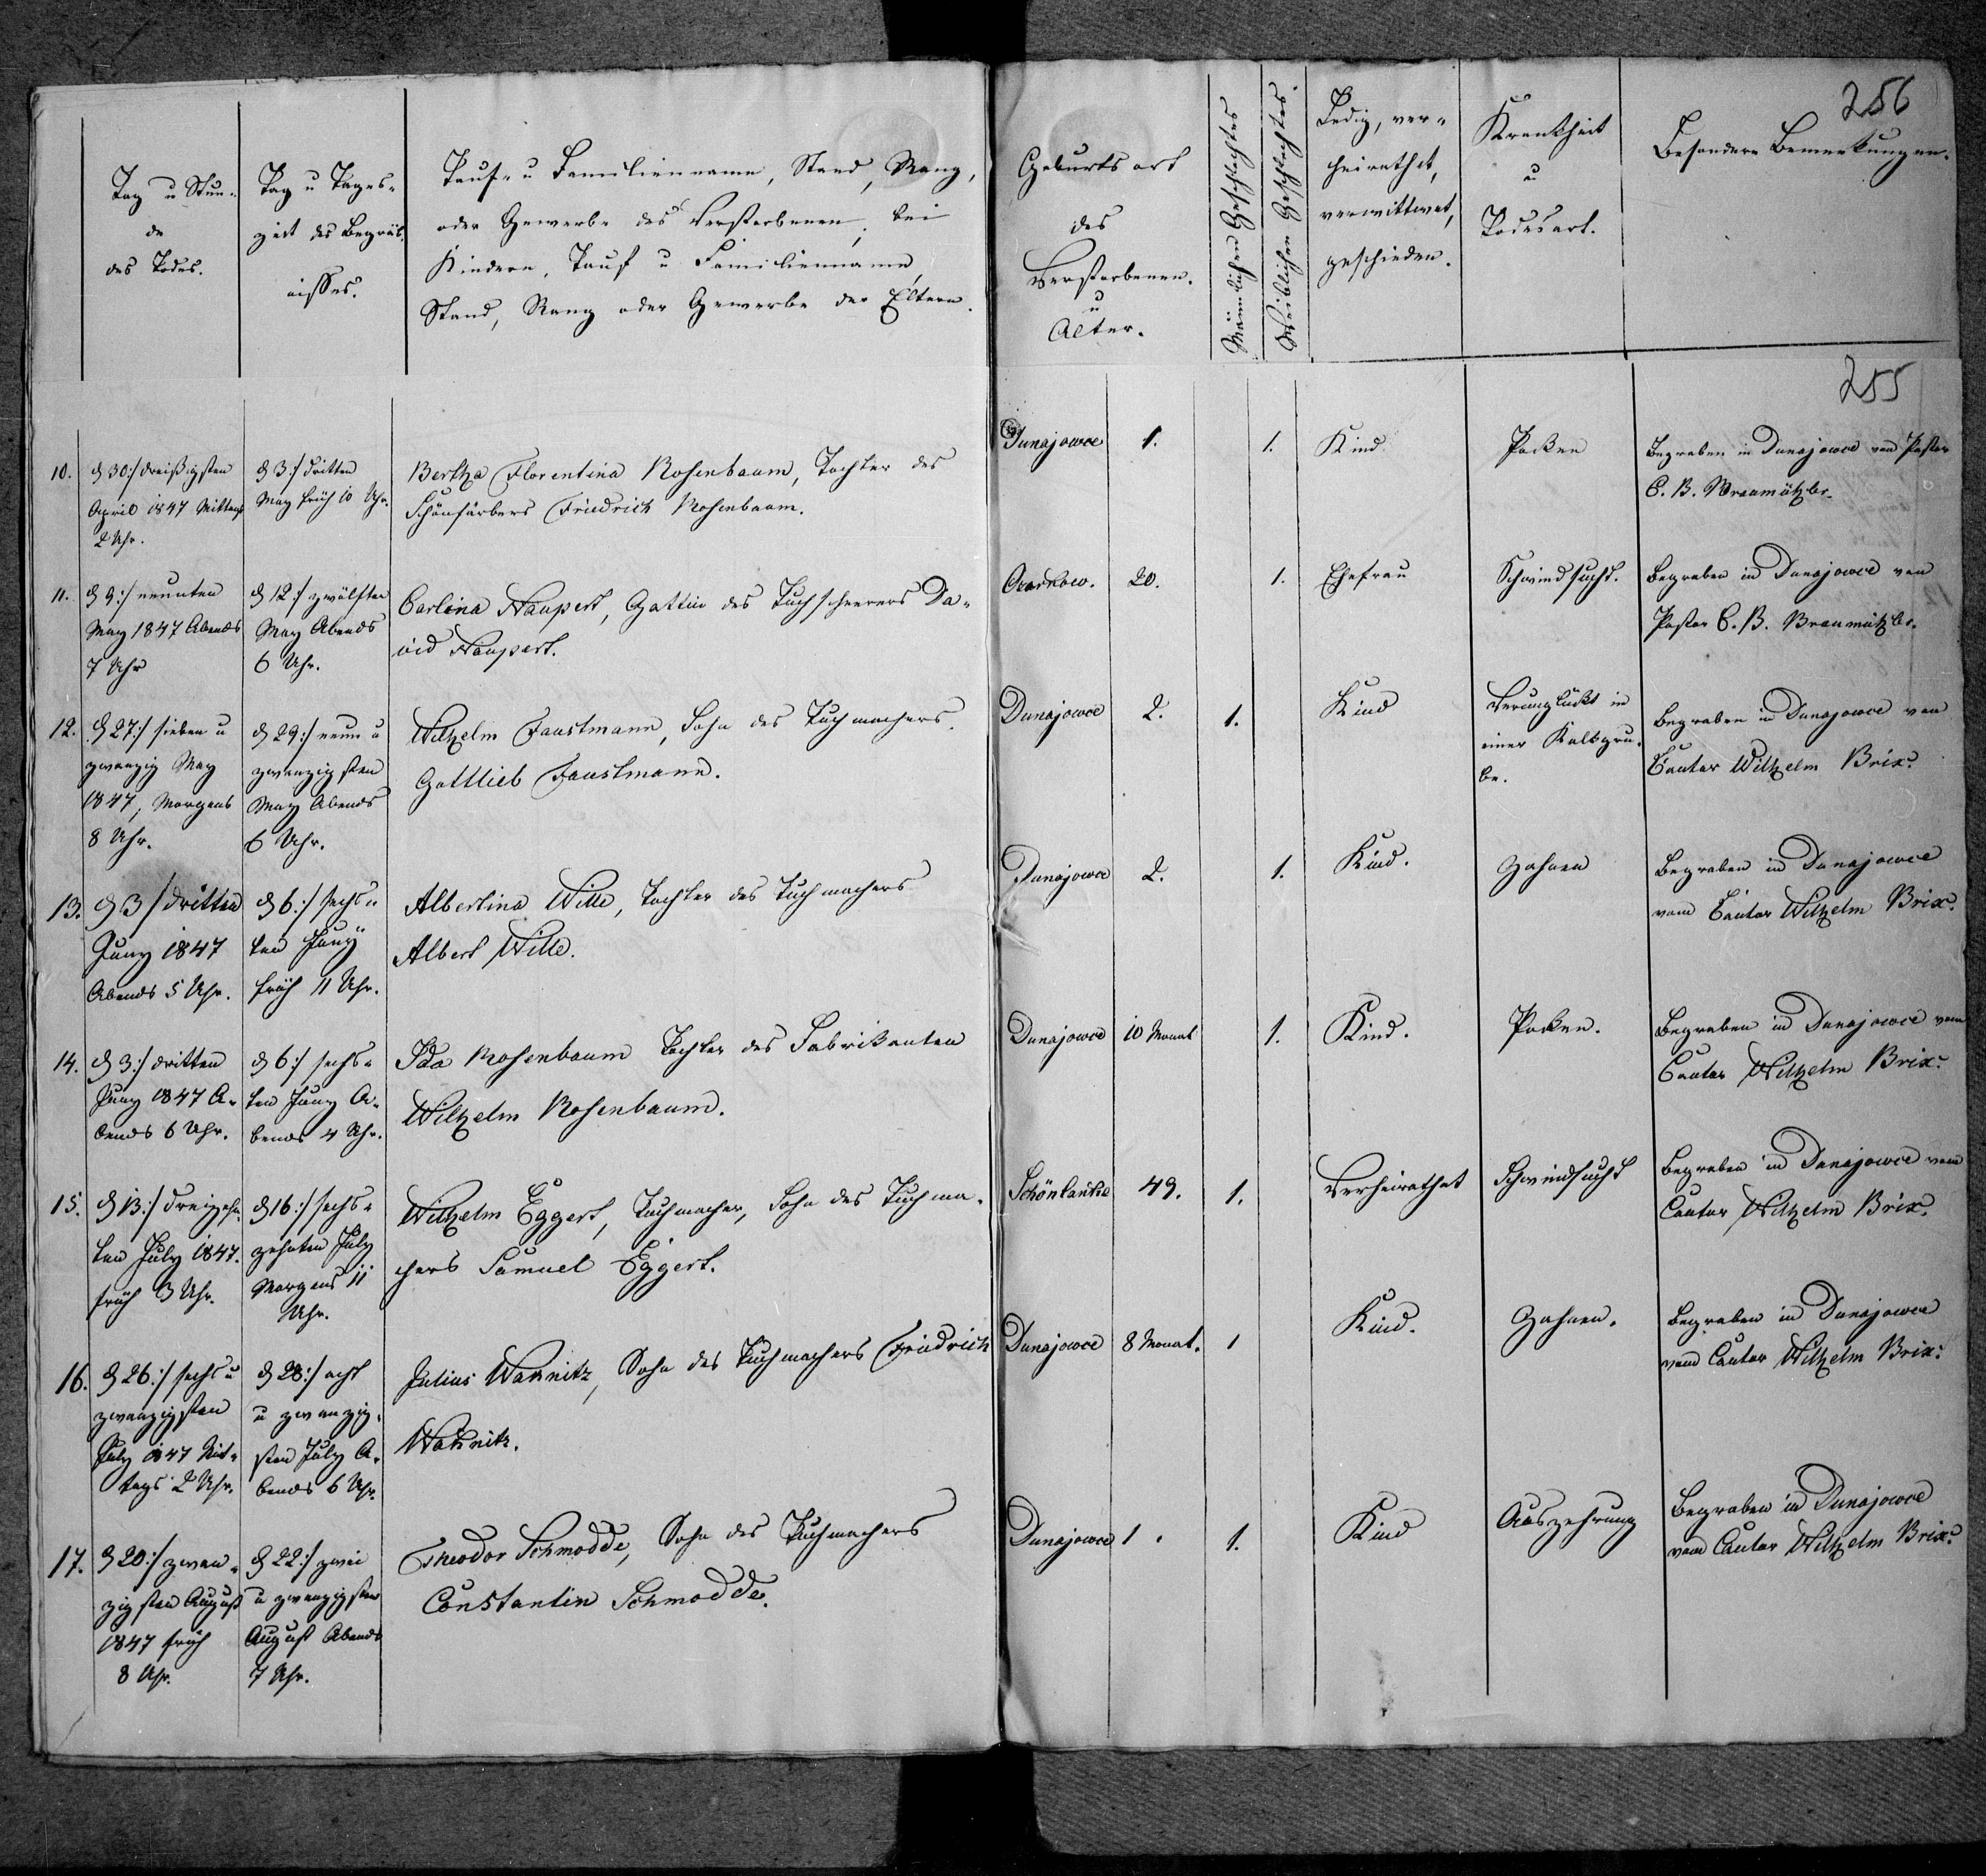 256
Tag u Stun-
de
des Todes.
Tag u Tages-
zeit des Begräb-
nisses.
Tauf- u Familienname, Stand, Rang,
oder Gewerbe des Verstorbenen, bei
Kindern, Tauf u Familienname,
Stand, Rang oder Gewerbe der Eltern.
Geburtsort
des
Verstorbenen.
u
Alter.
Männlichen Geschlechtes
Weiblichen Geschlechtes.
Ledig, ver-
heirathet,
verwittwet,
geschieden.
Krankheit
u
Todesart.
Besondere Bemerkungen.
255
10.
d 30:/ dreißigsten
April 1847 Mittags
2 Uhr.
d 3:/ dritten
May früh 10 Uhr.
Bertha Florentina Rosenbaum, Tochter des
Schönfärbers Friedrich Rosenbaum.
Dunajowce
1.
1.
Kind
Pocken
Begraben in Dunajowce von Pastor
C. B.
11.
d 9:/ neunten
May 1847 Abends
7 Uhr
d 12:/ zwölften
May Abends
6 Uhr.
Carlina Naupert, Gattin des Tuchscheerers Da-
vid Naupert.
Ozorkow.
20.
1.
Ehefrau
Schwindsucht.
Begraben in Dunajowce von
Pastor C. B.
12.
d 27:/ sieben u
zwanzig May
1847, Morgens
8 Uhr.
d 29:/ neun u
zwanzigsten
May Abends
6 Uhr.
Wilhelm Faustmann, Sohn des Tuchmachers
Gottlieb Faustmann.
Dunajowce
2.
1.
Kind
Verunglückt in
einer Kalkgru-
be.
Begraben in Dunajowce von
Cantor Wilhelm Brix.
13.
d 3/ dritten
Juny 1847
Abends 5 Uhr.
d 6:/ sechs-
ten Juny
früh 11 Uhr.
Albertina Wille, Tochter des Tuchmachers
Albert Wille.
Dunajowce
2.
1.
Kind.
Zahnen
Begraben in Dunajowce
vom Cantor Wilhelm Brix.
14.
d 3:/ dritten
Juny 1847 A-
bends 6 Uhr.
d 6:/ sechs-
ten Juny A-
bends 4 Uhr.
Ida Rosenbaum Tochter des Fabrikanten
Wilhelm Rosenbaum.
Dunajowce
10 Monat
1.
Kind.
Pocken.
Begraben in Dunajowce vom
Cantor Wilhelm Brix.
15.
d 13:/ dreizehn-
ten July 1847.
früh 3 Uhr.
d 16:/ sechs-
zehnten July
Morgens 11
Uhr.
Wilhelm Eggert, Tuchmacher, Sohn des Tuchma-
chers Samuel Eggert.
Schönlanke
49.
1.
Verheirathet
Schwindsucht
Begraben in Dunajowce vom
Cantor Wilhelm Brix.
16.
d 26:/ sechs u
zwanzigsten
July 1847 Mit-
tags 2 Uhr.
d 28:/ acht
u zwanzig-
sten July A-
bends 6 Uhr.
Julius Wannitz, Sohn des Tuchmachers Friedrich
Wannitz.
Dunajowce
8 Monat.
1
Kind.
Zahnen.
Begraben in Dunajowce
vom Cantor Wilhelm Brix.
17.
d 20:/ zwan-
zigsten August
1847 früh
8 Uhr.
d 22:/ zwei
u zwanzigsten
August Abends
7 Uhr.
Theodor Schmodde, Sohn des Tuchmachers
Constantin Schmodde.
Dunajowce
1.
1.
Kind
Auszehrung
Begraben in Dunajowce
vom Cantor Wilhelm Brix.